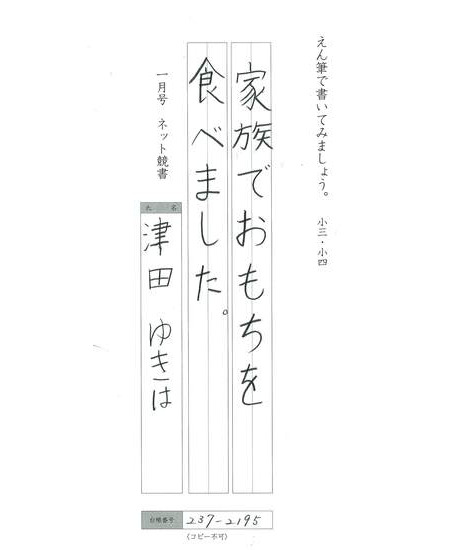 えん筆で書いてみましょう。 小三・小四
家族でおもちを
食べました。
一月号 ネット競書
氏名
津田 ゆきは
台帳番号 237-2195
(コピー不可)